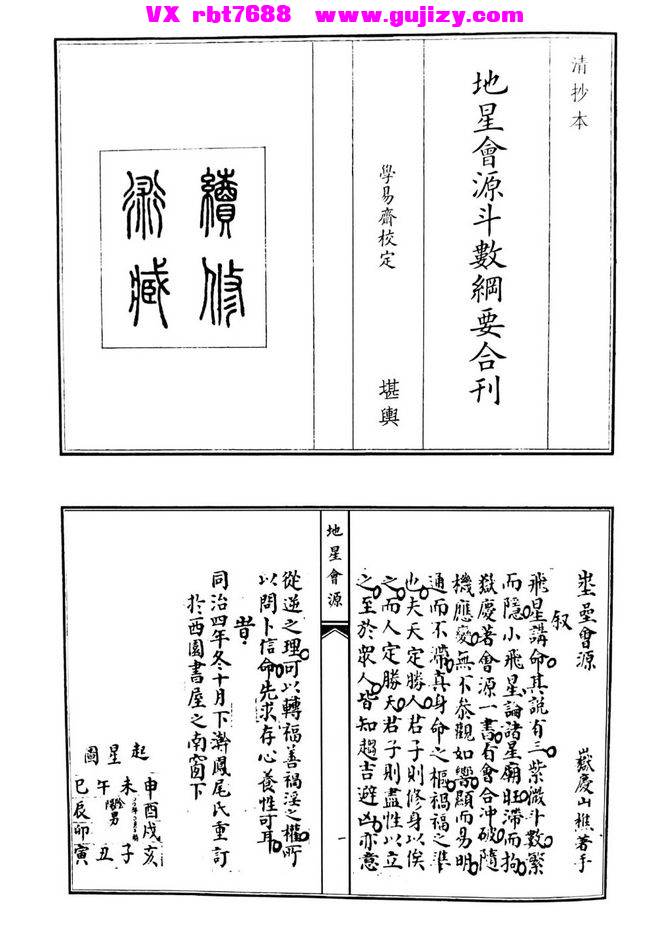 VX rbt7688 www.gujizy.com
清抄本
地星會源斗數綱要合刊
學易齋校定
堪輿
續修
術藏
地星會源
嶽慶山樵著手
叙
飛星講命其說有三紫微斗數繁
而隱小飛星論諸星廟旺滯而拘
嶽慶著會源一書有會合沖破隨
機應變無不參觀如響顯而易明
通而不滯真身命之樞禍福之準
也夫天定勝人君子則修身以俟
之而人定勝天君子則盡性以立
之至於眾人皆知趨吉避凶亦意
地星會源
一
從逆之理可以轉福善禍淫之權所
以問卜信命先求存心養性可耳
昔
同治四年冬十月下澣鳳尾氏重訂
於西園書屋之南窗下
起星圖
申酉戌亥
未
子
午
陰男
丑
巳辰卯寅